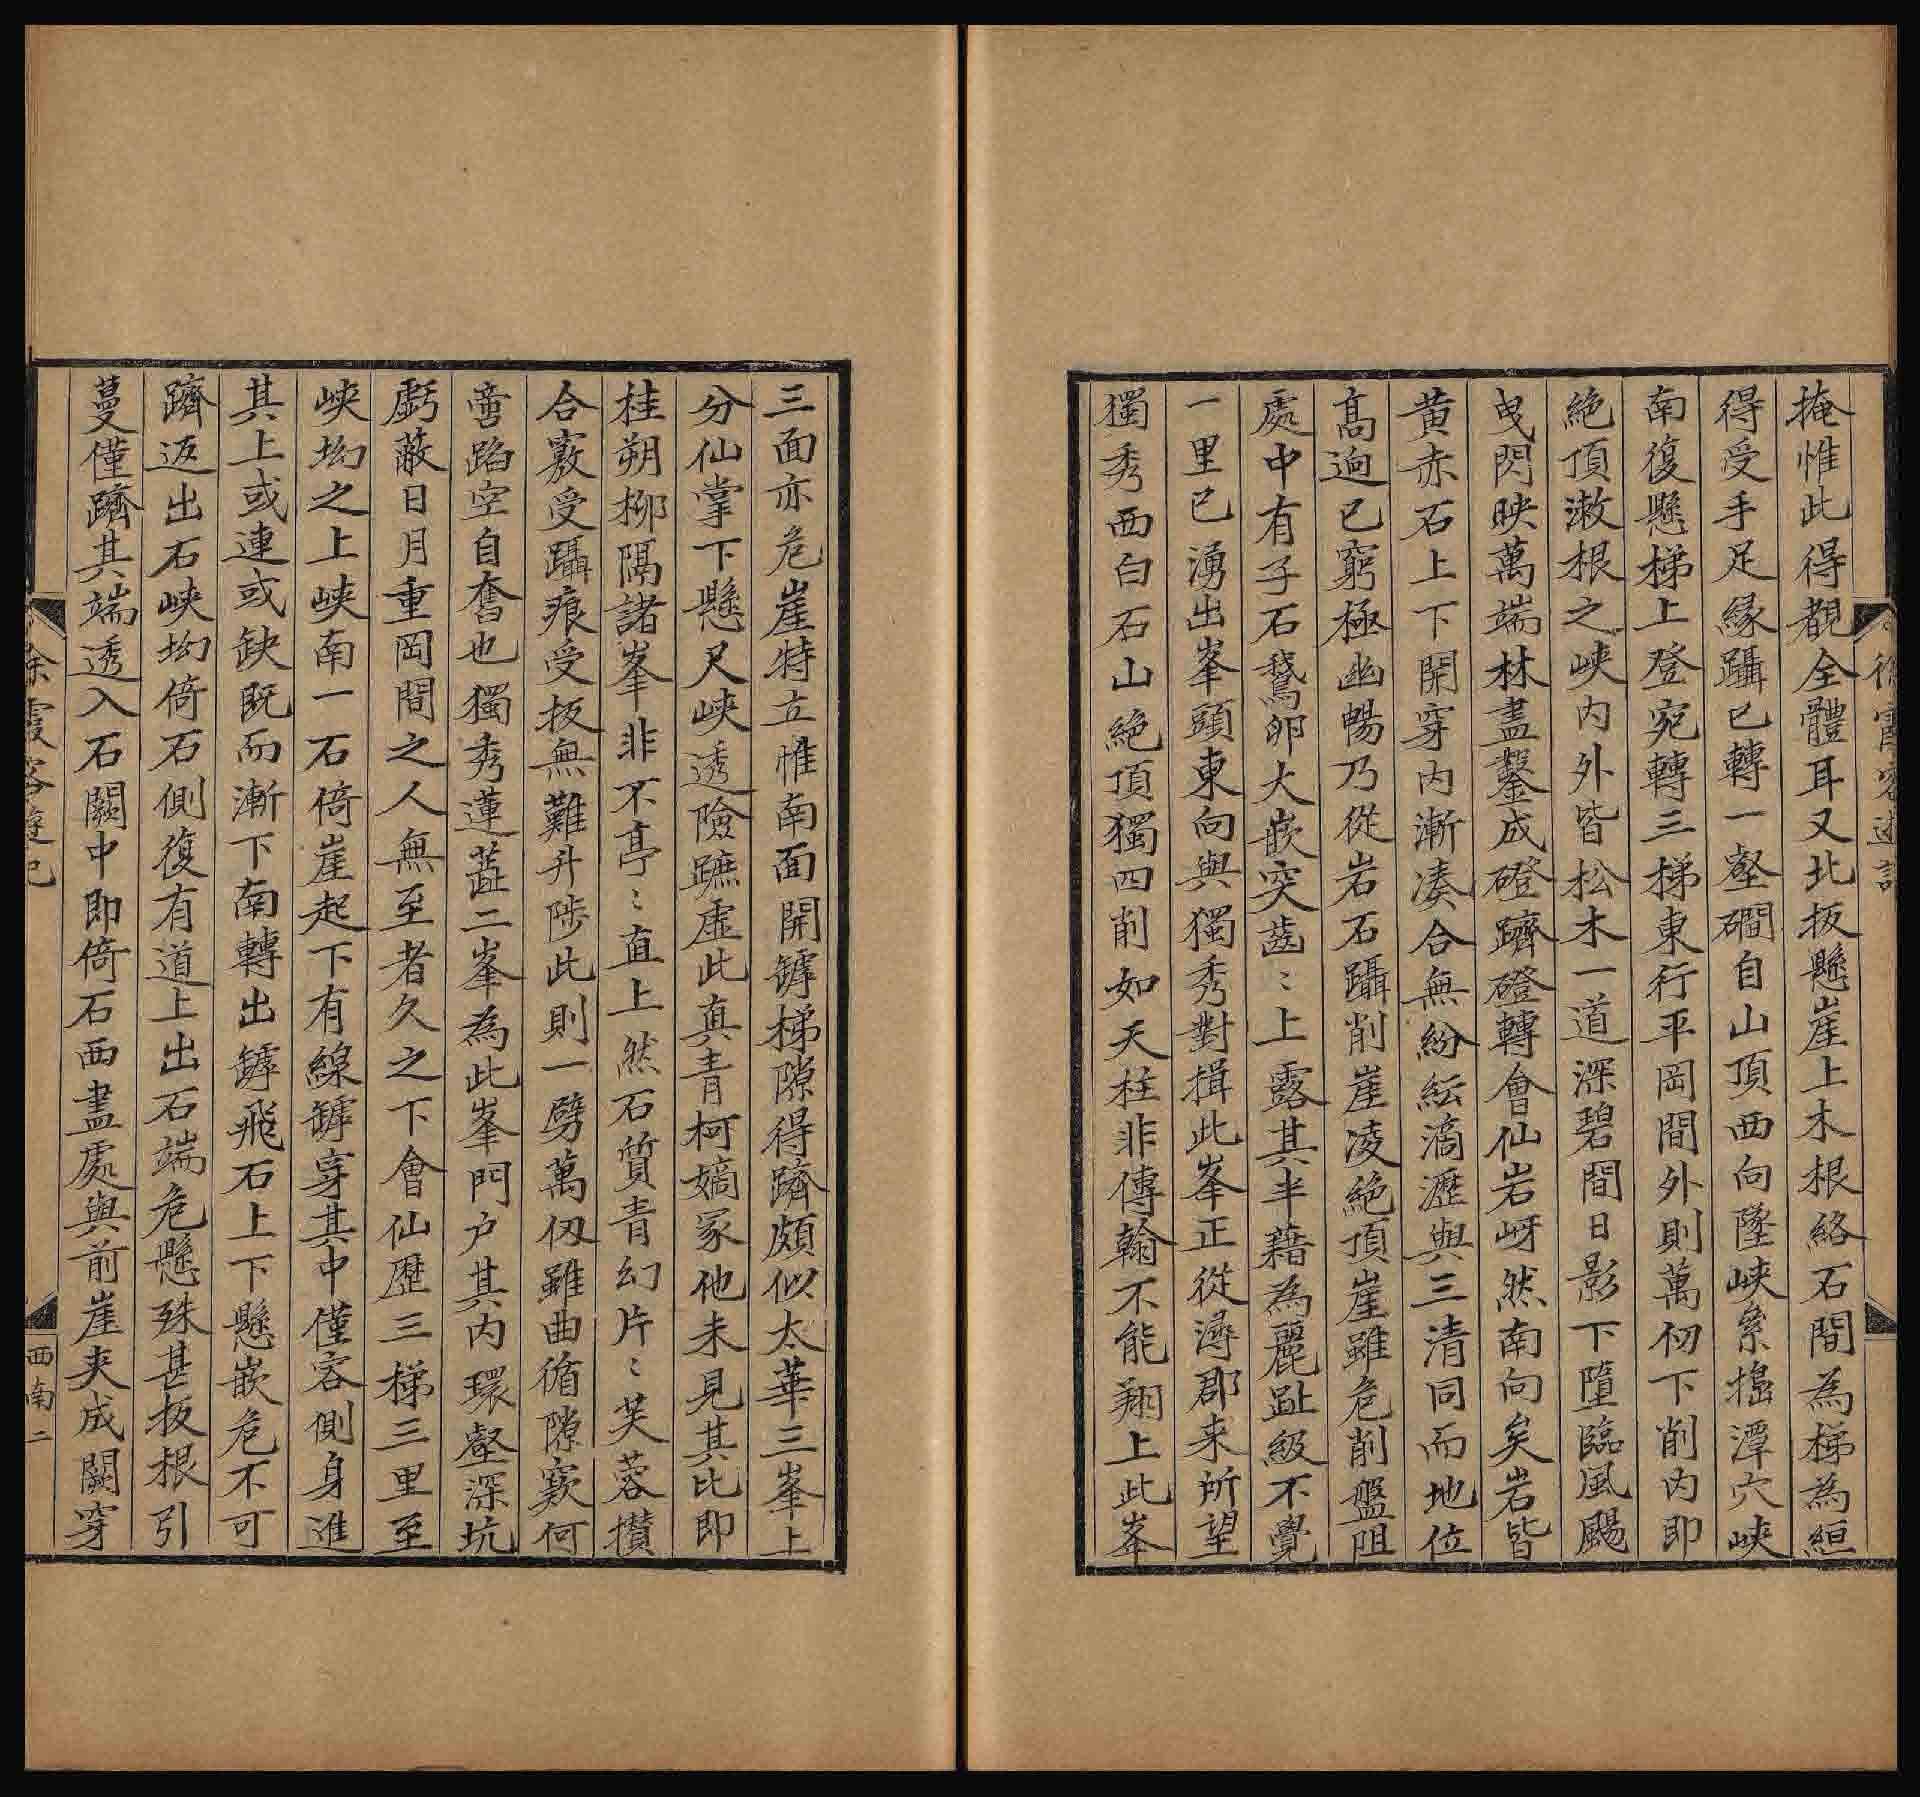 掩惟此得覩全體耳又北扳懸崖上木根絡石間為梯為絙
得受手足緣躡已轉一壑磵自山頂西向墜峽纍搗潭穴峽
南復懸梯上登宛轉三梯東行平岡間外則萬仞下削内即
絶頂潄根之峽内外皆松木一道深碧間日影下墮臨風颺
曳閃映萬端林盡鑿成磴躋磴轉會仙岩岈然南向矣岩皆
黄赤石上下開穿内漸凑合無紛紜滴瀝與三清同而地位
髙逈已窮極幽暢乃從岩石躡削崖凌絶頂崖雖危削盤阻
處中有子石鵞卵大嵌突齒〻上露其半藉為麗趾級不覺
一里已湧出峯頭東向與獨秀對揖此峯正從潯郡来所望
獨秀西白石山絶頂獨四削如天柱非傳翰不能翔上此峯
三面亦危崖特立惟南面開罅梯隙得躋頗似太華三峯上
分仙掌下懸尺峽透險蹠虚此真青柯嫡冢他未見其比即
桂朔柳隅諸峯非不亭〻直上然石質青幻片〻芙蓉攢
合竅受躡痕受扳無難升陟此則一劈萬仭雖曲循隙窽何
啻蹈空自奮也獨秀蓮蕋二峯為此峯門户其内環壑深坑
虧蔽日月重岡間之人無至者久之下會仙歴三梯三里至
峽坳之上峽南一石倚崖起下有線罅穿其中僅容側身進
其上或連或缺既而漸下南轉出罅飛石上下懸嵌危不可
躋返出石峽坳倚石側復有道上出石端危懸殊甚扳根引
蔓僅躋其端透入石闕中即倚石西盡處與前崖夾成闕穿
徐霞客遊記
西南二